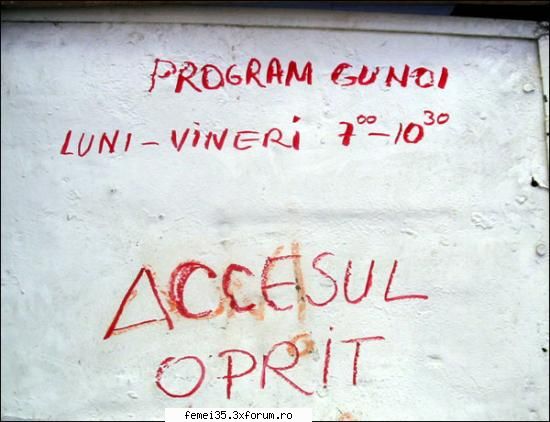 PROGRAM GUNOI
LUNI - VINERI 7⁰⁰-10³⁰
ACCESUL
OPRIT
femei35.3xforum.ro